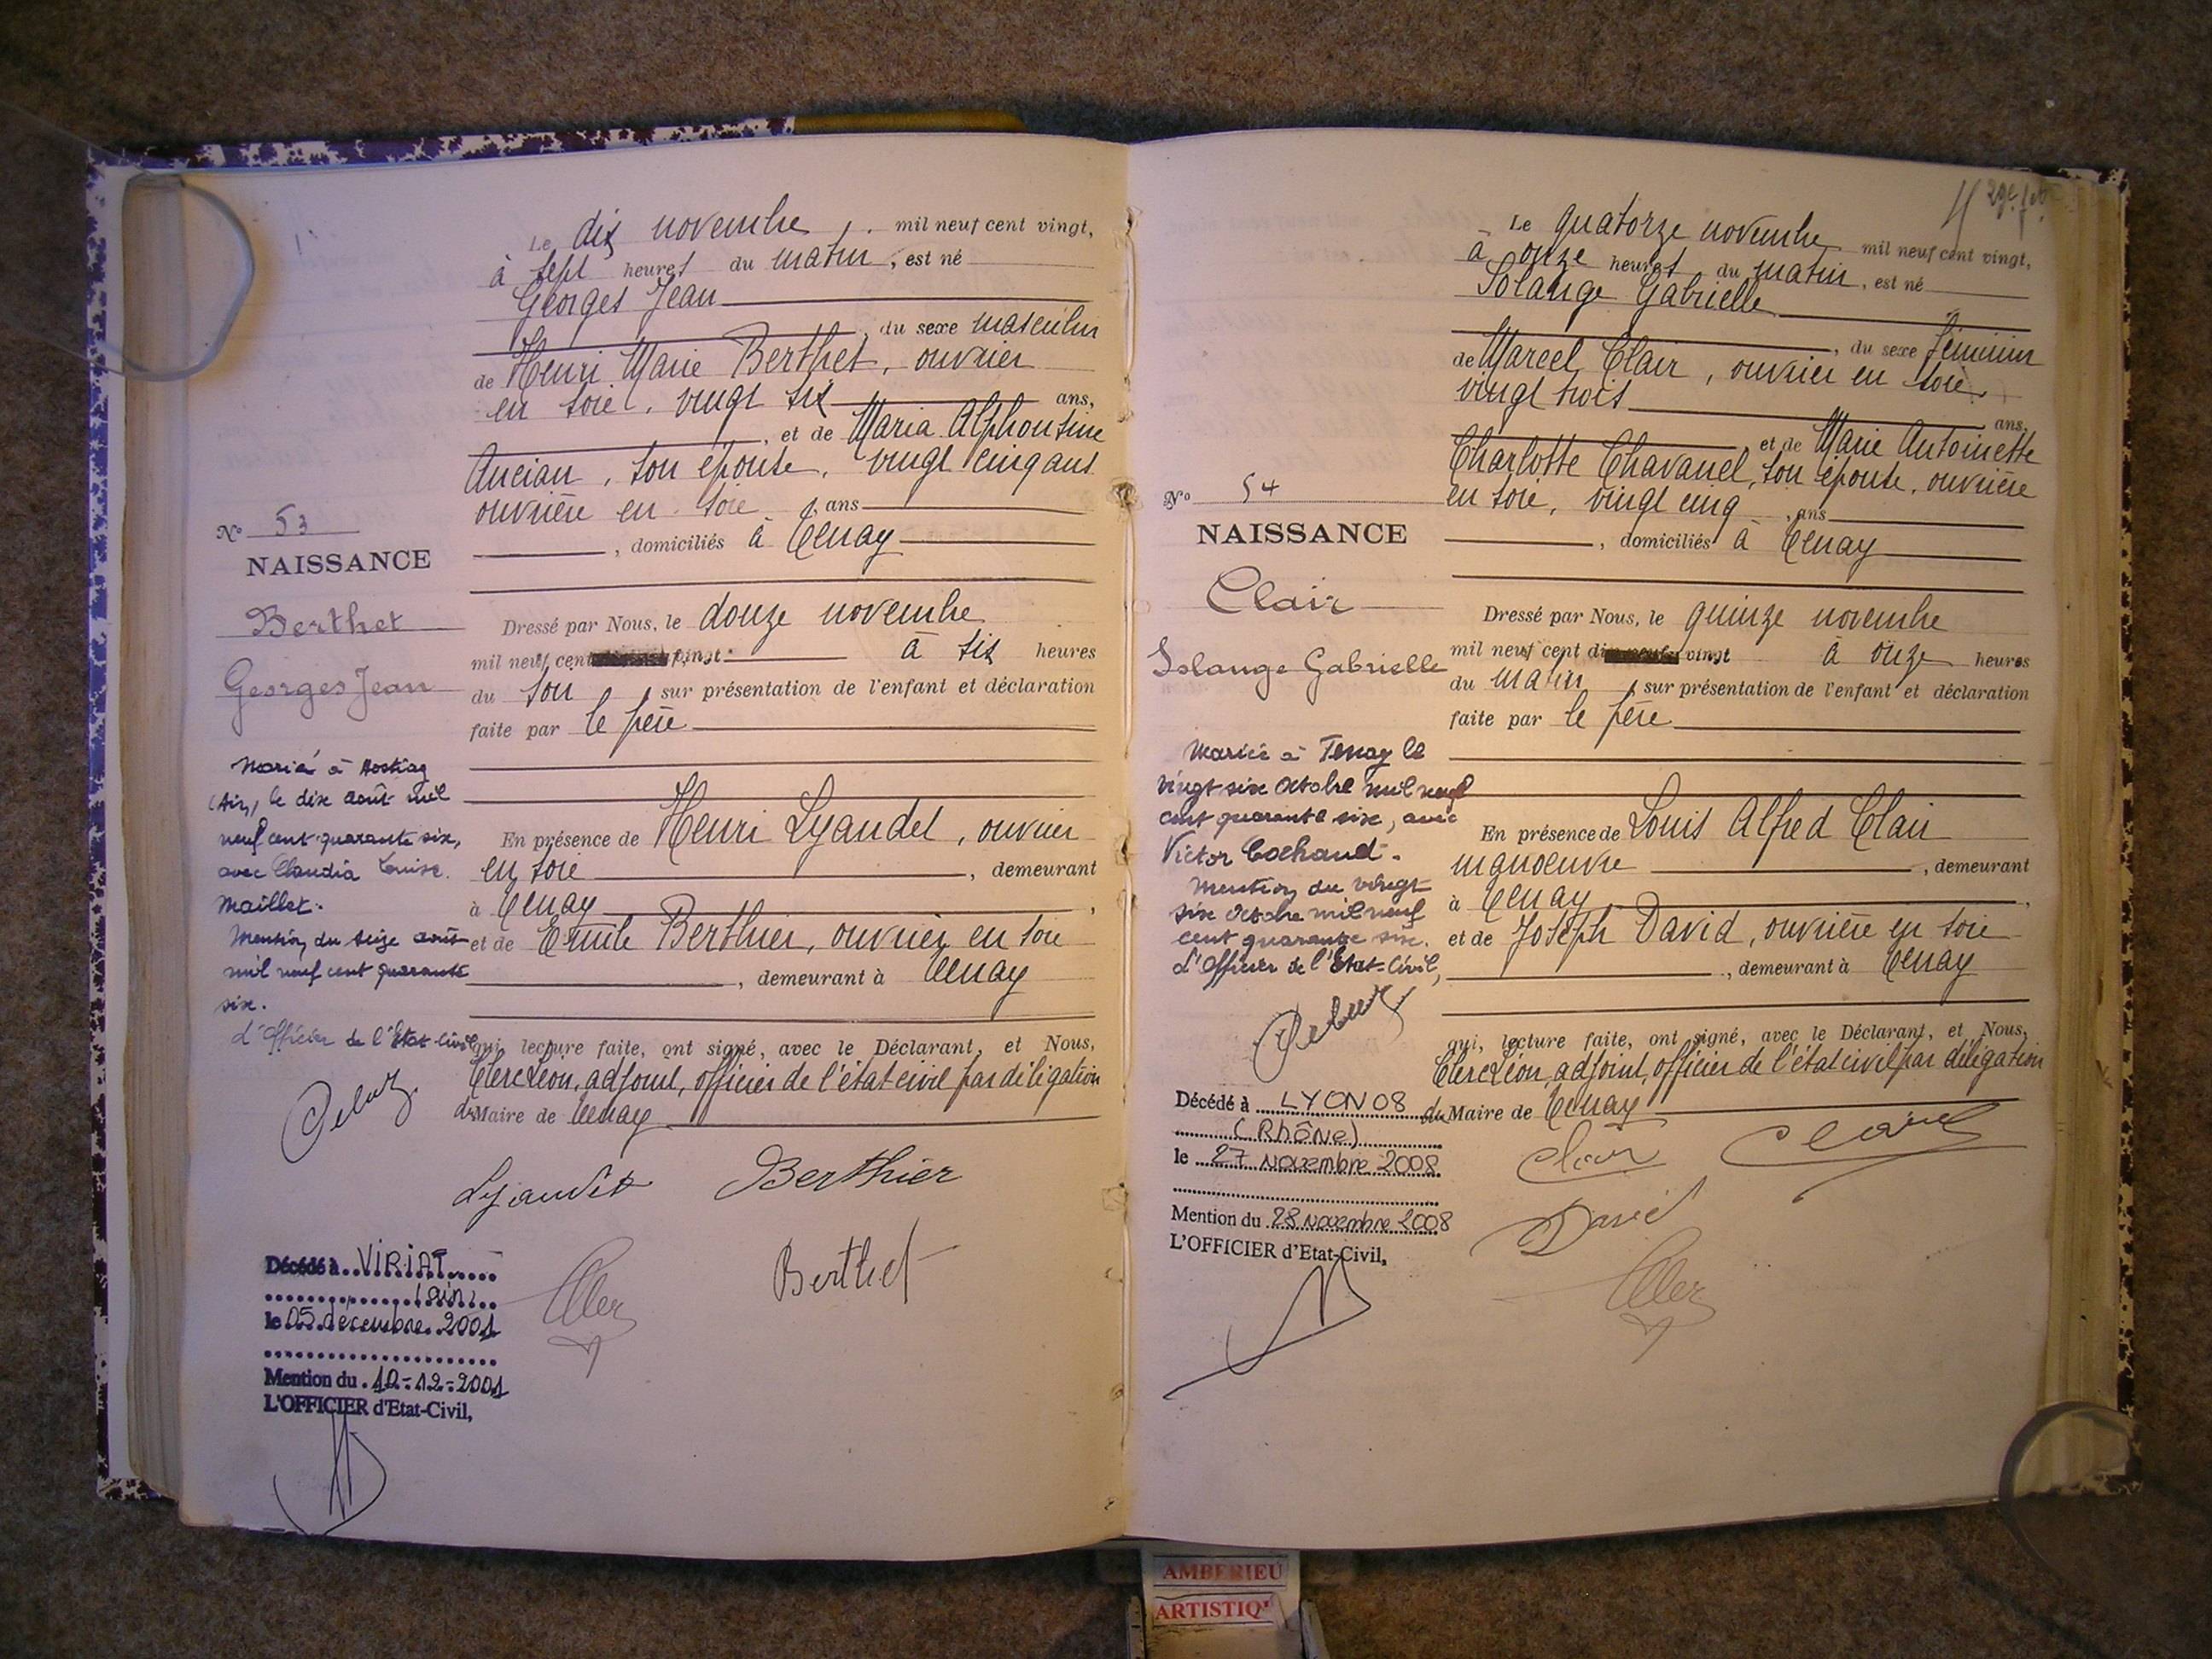 Le dix novembre mil neuf cent vingt,
à sept heures du matin, est né
Georges Jean
, du sexe masculin
de Henri Marie Berthet, ouvrier
en soie, vingt six ans,
, et de Maria Alphonsine
Ancian, son épouse, vingt cinq ans
ouvrière en soie, ans
, domiciliés à Tenay
N° 53
NAISSANCE
Berthet
Georges Jean
Dressé par Nous, le douze novembre
mil neuf cent vingt à six heures
du soir, sur présentation de l'enfant et déclaration
faite par le père
Marié à Hostiaz
(Ain) le dix août mil
neuf cent quarante six,
avec Claudia Louise
Maillet.
Mention du seize août
mil neuf cent quarante
six.
L'Officier de l'Etat-Civil
En présence de Henri Lyaudet, ouvrier
en soie, demeurant
à Tenay,
et de Emile Berthier, ouvrier en soie
, demeurant à Tenay
qui, lecture faite, ont signé, avec le Déclarant, et Nous,
Clerc Léon, adjoint, officier de l'état civil par délégation
du Maire de Tenay
Lyaudet Berthier
Berthet
Décédé à VIRIAT
(Ain)
le 05 décembre 2001
Mention du 10-12-2001
L'OFFICIER d'Etat-Civil,
Le quatorze novembre mil neuf cent vingt,
à onze heures du matin, est né
Solange Gabrielle
, du sexe féminin
de Marcel Clair, ouvrier en soie,
vingt trois ans,
et de Marie Antoinette
Charlotte Chavanel, son épouse, ouvrière
en soie, vingt cinq, ans
, domiciliés à Tenay
N° 54
NAISSANCE
Clair
Solange Gabrielle
Dressé par Nous, le quinze novembre
mil neuf cent dix-neuf vingt à onze heures
du matin, sur présentation de l'enfant et déclaration
faite par le père
Mariée à Tenay le
vingt six Octobre mil neuf
cent quarante six, avec
Victor Cochaud.
Mention du vingt
six Octobre mil neuf
cent quarante six.
L'Officier de l'Etat-Civil,
En présence de Louis Alfred Clair
manoeuvre, demeurant
à Tenay,
et de Joseph David, ouvrière en soie
, demeurant à Tenay
qui, lecture faite, ont signé, avec le Déclarant, et Nous,
Clerc Léon, adjoint, officier de l'état civil par délégation
du Maire de Tenay
Clair
David
Décédé à LYON 08
(Rhône)
le 27 novembre 2008
Mention du 28 novembre 2008
L'OFFICIER d'Etat-Civil,
AMBERIEU
ARTISTIQ